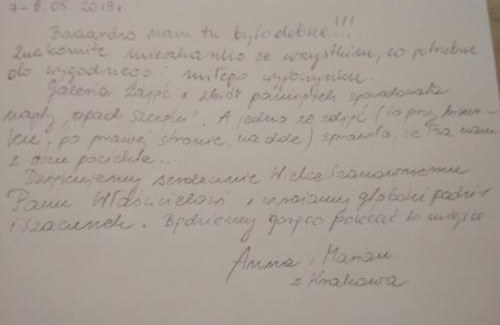 7-9.05.2019r.
Baaardzo nam tu było dobrze!!!
Znakomite mieszkanko ze wszystkim, co potrzebne
do wygodnego i miłego wypoczynku.
Galeria zdjęć i zbiór pamiątek spowodowała
nagły „opad szczęki”. A jedno ze zdjęć (to przy
po prawej stronie, na dole) sprawiło, że łza nam
z oczu pociekła...
Dziękujemy serdecznie Wielce Szanownemu
Panu Właścicielowi i wyrażamy głęboki podziw
i szacunek. Będziemy gorąco polecać to miejsce.
Anna i Marian
z Krakowa